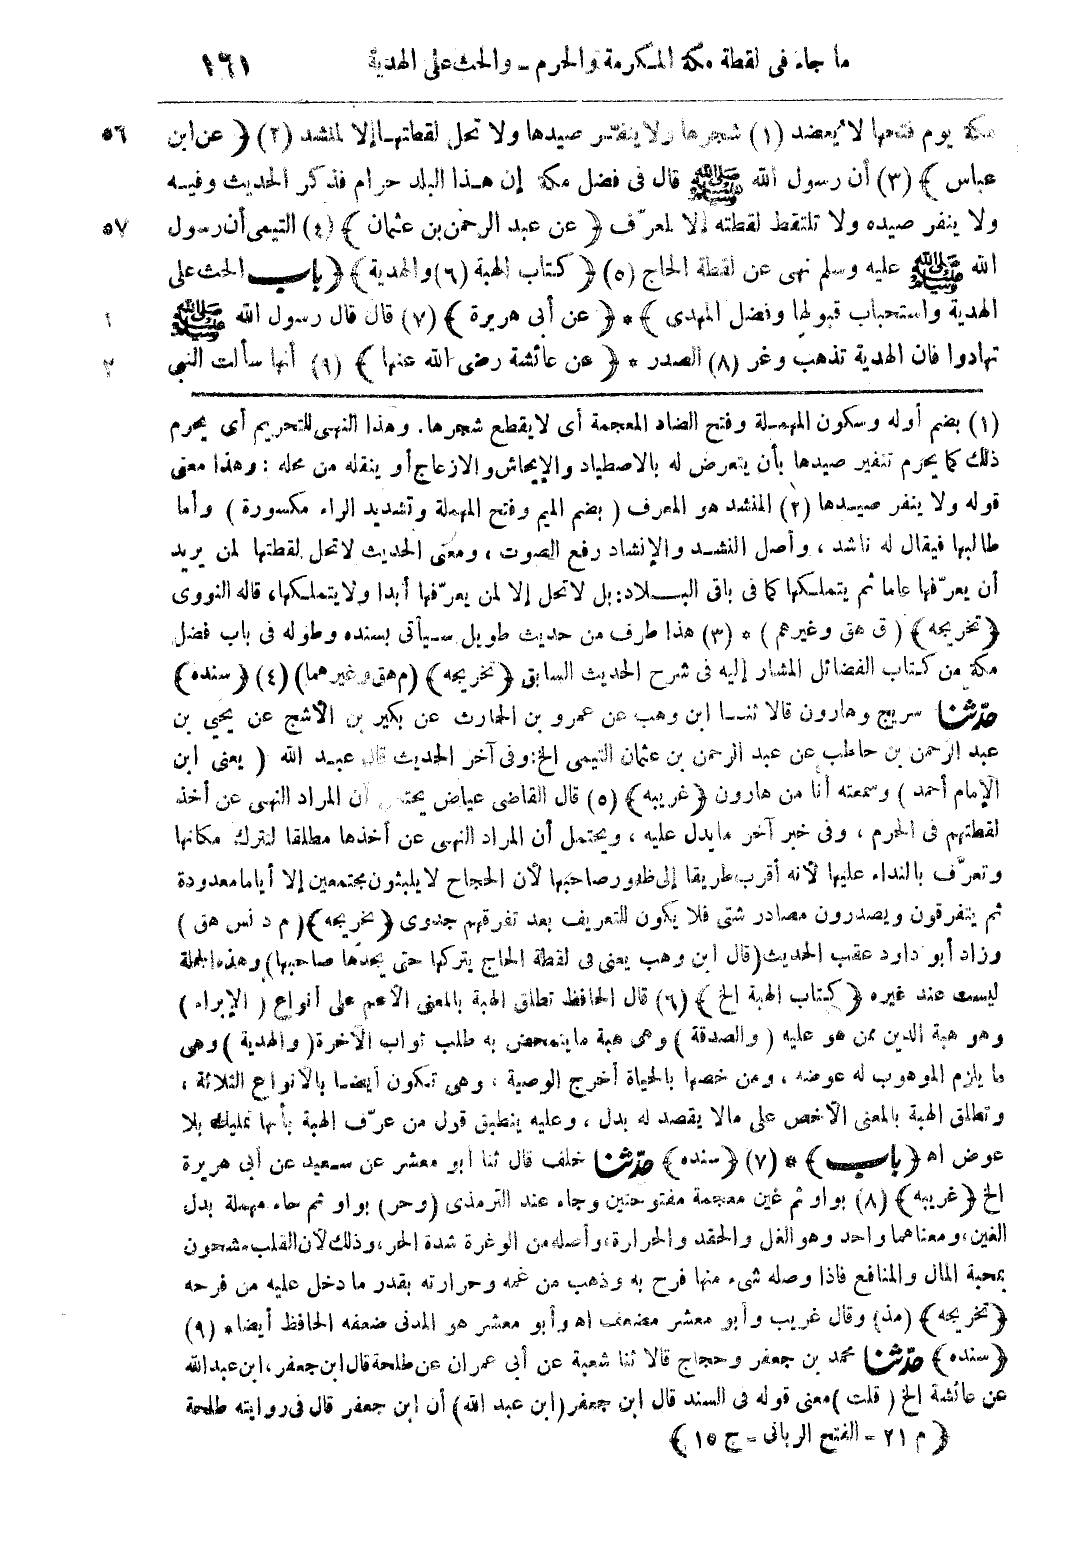 ما جاء فى لقطة مكة المكرمة والحرم - والحث على الهدية ١٦١
مكة يوم فتحها لا يُعضد (١) شجرها ولا ينفّر صيدها ولا تحل لقطتها إلا لمنشد (٢) ﴿ عن ابن ٥٦
عباس ﴾ (٣) أن رسول الله ﷺ قال فى فضل مكة إن هذا البلد حرام فذكر الحديث وفيه
ولا ينفر صيده ولا تلتقط لقطته إلا لمعرّف ﴿ عن عبد الرحمن بن عثمان ﴾ (٤) التيمى أن رسول ٥٧
الله ﷺ عليه وسلم نهى عن لقطة الحاج (٥) ﴿ كتاب الهبة (٦) والهدية ﴾ ﴿ باب الحث على
الهدية واستحباب قبولها وفضل المهدى ﴾ * ﴿ عن أبى هريرة ﴾ (٧) قال قال رسول الله ﷺ ١
تهادوا فان الهدية تذهب وغر (٨) الصدر * ﴿ عن عائشة رضى الله عنها ﴾ (٩) أنها سألت النبي ٢
(١) بضم أوله وسكون المهملة وفتح الضاد المعجمة أى لا يقطع شجرها. وهذا النهى للتحريم أى يحرم
ذلك كما يحرم تنفير صيدها بأن يتعرض له بالاصطياد والإيحاش والازعاج أو ينقله من محله : وهذا معنى
قوله ولا ينفر صيدها (٢) المنشد هو المعرف ( بضم الميم وفتح المهملة وتشديد الراء مكسورة ) وأما
طالبها فيقال له ناشد ، وأصل النشد والإنشاد رفع الصوت ، ومعنى الحديث لا تحل لقطتها لمن يريد
أن يعرّفها عاما ثم يتملكها كما فى باقى البلاد: بل لا تحل إلا لمن يعرّفها أبدا ولا يتملكها، قاله النووى
﴿ تخريجه ﴾ ( ق هق وغيرهم ) * (٣) هذا طرف من حديث طويل سيأتى بسنده وطوله فى باب فضل
مكة من كتاب الفضائل المشار إليه فى شرح الحديث السابق ﴿ تخريجه ﴾ (م هق وغيرهما) (٤) ﴿ سنده ﴾
حدّثنا سريج وهارون قالا ثنا ابن وهب عن عمرو بن الحارث عن بكير بن الأشج عن يحيى بن
عبد الرحمن بن حاطب عن عبد الرحمن بن عثمان التيمى الخ: وفى آخر الحديث قال عبد الله ( يعنى ابن
الإمام أحمد ) وسمعته أنا من هارون ﴿ غريبه ﴾ (٥) قال القاضى عياض يحتمل أن المراد النهى عن أخذ
لقطتهم فى الحرم ، وفى خبر آخر ما يدل عليه ، ويحتمل أن المراد النهى عن أخذها مطلقا لتترك مكانها
وتعرّف بالنداء عليها لأنه أقرب طريقا إلى ظهور صاحبها لأن الحجاج لا يلبثون مجتمعين إلا أياما معدودة
ثم يتفرقون ويصدرون مصادر شتى فلا يكون للتعريف بعد تفرقهم جدوى ﴿ تخريجه ﴾ ( م د نس هق )
وزاد أبو داود عقب الحديث (قال ابن وهب يعنى فى لقطة الحاج يتركها حتى يجدها صاحبها) وهذه الجملة
ليست عند غيره ﴿ كتاب الهبة الخ ﴾ (٦) قال الحافظ تطلق الهبة بالمعنى الأعم على أنواع ( الإبراء )
وهو هبة الدين ممن هو عليه ( والصدقة ) وهى هبة ما يتمحض به طلب ثواب الآخرة ( والهدية ) وهى
ما يلزم الموهوب له عوضه ، ومن خصها بالحياة أخرج الوصية ، وهى تكون أيضا بالأنواع الثلاثة ،
وتطلق الهبة بالمعنى الأخص على مالا يقصد له بدل ، وعليه ينطبق قول من عرّف الهبة بأنها تمليك بلا
عوض اه ﴿ باب ﴾ * (٧) ﴿ سنده ﴾ حدّثنا خلف قال ثنا أبو معشر عن سعيد عن أبى هريرة
الخ ﴿ غريبه ﴾ (٨) بواو ثم غين معجمة مفتوحتين وجاء عند الترمذى (وحر) بواو ثم حاء مهملة بدل
الغين، ومعناهما واحد وهو الغل والحقد والحرارة، وأصله من الوغرة شدة الحر، وذلك لأن القلب مشحون
بمحبة المال والمنافع فاذا وصله شىء منها فرح به وذهب من غمه وحرارته بقدر ما دخل عليه من فرحه
﴿ تخريجه ﴾ (مذ) وقال غريب وأبو معشر مضعف اه وأبو معشر هو المدنى ضعفه الحافظ أيضا * (٩)
﴿ سنده ﴾ حدّثنا محمد بن جعفر وحجاج قالا ثنا شعبة عن أبى عمران عن طلحة قال ابن جعفر، ابن عبد الله
عن عائشة الخ ( قلت ) معنى قوله فى السند قال ابن جعفر (ابن عبد الله) أن ابن جعفر قال فى روايته طلحة
﴿ م ٢١ - الفتح الربانى - ج ١٥ ﴾